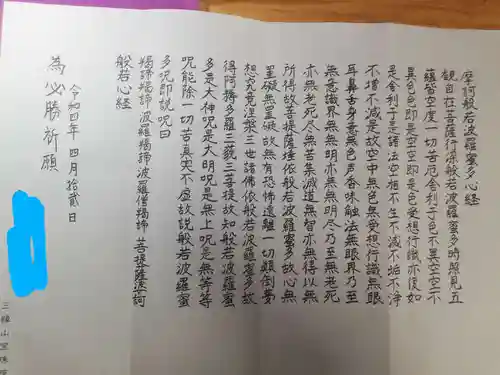 摩訶般若波羅蜜多心経
観自在菩薩行深般若波羅蜜多時照見五
蘊皆空度一切苦厄舎利子色不異空空不
異色色即是空空即是色受想行識亦復如
是舎利子是諸法空相不生不滅不垢不浄
不増不減是故空中無色無受想行識無眼
耳鼻舌身意無色声香味触法無眼界乃至
無意識界無無明亦無無明尽乃至無老死
亦無老死尽無苦集滅道無智亦無得以無
所得故菩提薩埵依般若波羅蜜多故心無
罣礙無罣礙故無有恐怖遠離一切顛倒夢
想究竟涅槃三世諸佛依般若波羅蜜多故
得阿耨多羅三藐三菩提故知般若波羅蜜
多是大神呪是大明呪是無上呪是無等等
呪能除一切苦真実不虚故説般若波羅蜜
多呪即説呪曰
羯諦羯諦波羅羯諦波羅僧羯諦菩提薩婆訶
般若心経
令和四年 四月拾弐日
為必勝祈願